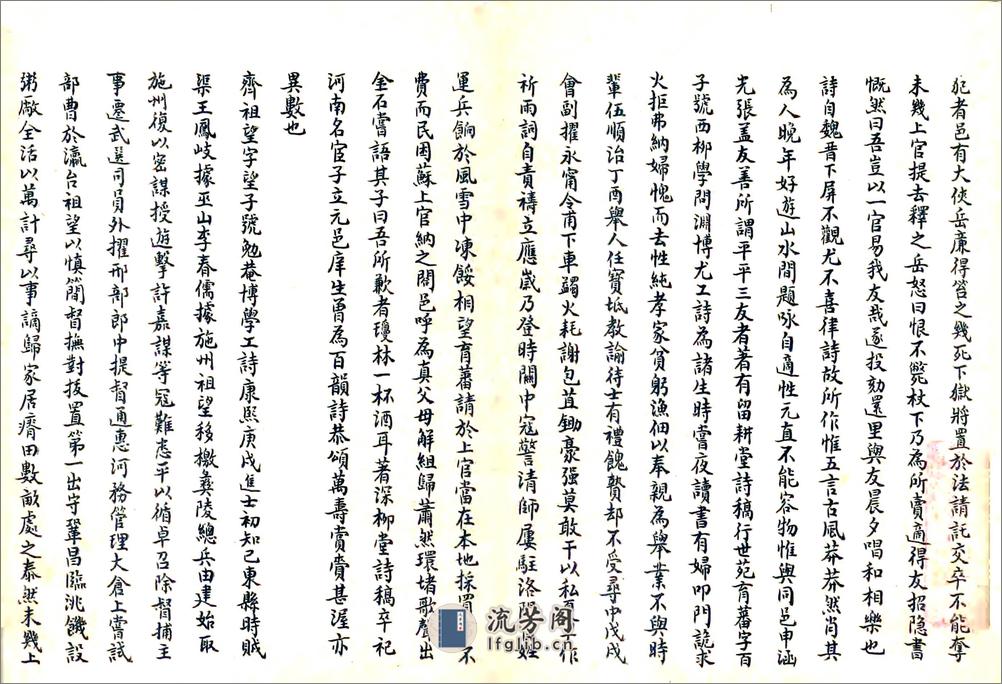 犯者邑有大俠岳廉得笞之幾死下獄將置於法請託交卒不能奪
未幾上官提去釋之岳怒曰恨不斃杖下乃為所賣適得友招隐書
慨然曰吾豈以一官易我友哉遂投劾還里與友晨夕唱和相樂也
詩自魏晋下屏不觀尤不喜律詩故所作惟五言古風莽莽然肖其
為人晚年好遊山水間題咏自適性元直不能容物惟與同邑申涵
光張盖友善所謂平平三友者著有留耕堂詩稿行世苑育蕃字百
子號西柳學問淵博尤工詩為諸生時嘗夜讀書有婦叩門詭求
火拒弗納婦愧而去性純孝家貧躬漁佃以奉親為舉業不與時
輩伍順治丁酉舉人任寳坻教諭待士有禮餽贄却不受尋中戊戌
會副擢永甯令甫下車蠲火耗謝包苴鋤豪强莫敢干以私作
祈雨詞自責禱立應嵗乃登時關中寇警清師屢駐洛陽姓
運兵餉於風雪中凍餒相望育蕃請於上官當在本地採買不
費而民困蘇上官納之闔邑呼為真父母解組歸蕭然環堵歌聲出
金石嘗語其子曰吾所歉者瓊林一杯酒耳著深柳堂詩稿卒祀
河南名宦子立元邑庠生曽為百韻詩恭頌萬壽賞賚甚渥亦
異數也
齊祖望字望子號勉菴博學工詩康熙庚戌進士初知已東縣時賊
渠王鳳岐據巫山李春儒據施州祖望移檄彝陵總兵由建始取
施州復以密謀授遊擊許嘉謀等冦難悉平以循卓召除督捕主
事遷武選司員外擢邢部郎中提督通惠河務管理大倉上嘗試
部曹於瀛台祖望以慎簡督撫對拔置第一出守鞏昌臨洮饑設
粥厰全活以萬計尋以事謫歸家居瘠田數畝處之泰然未幾上
流芳阁
lfglib.com